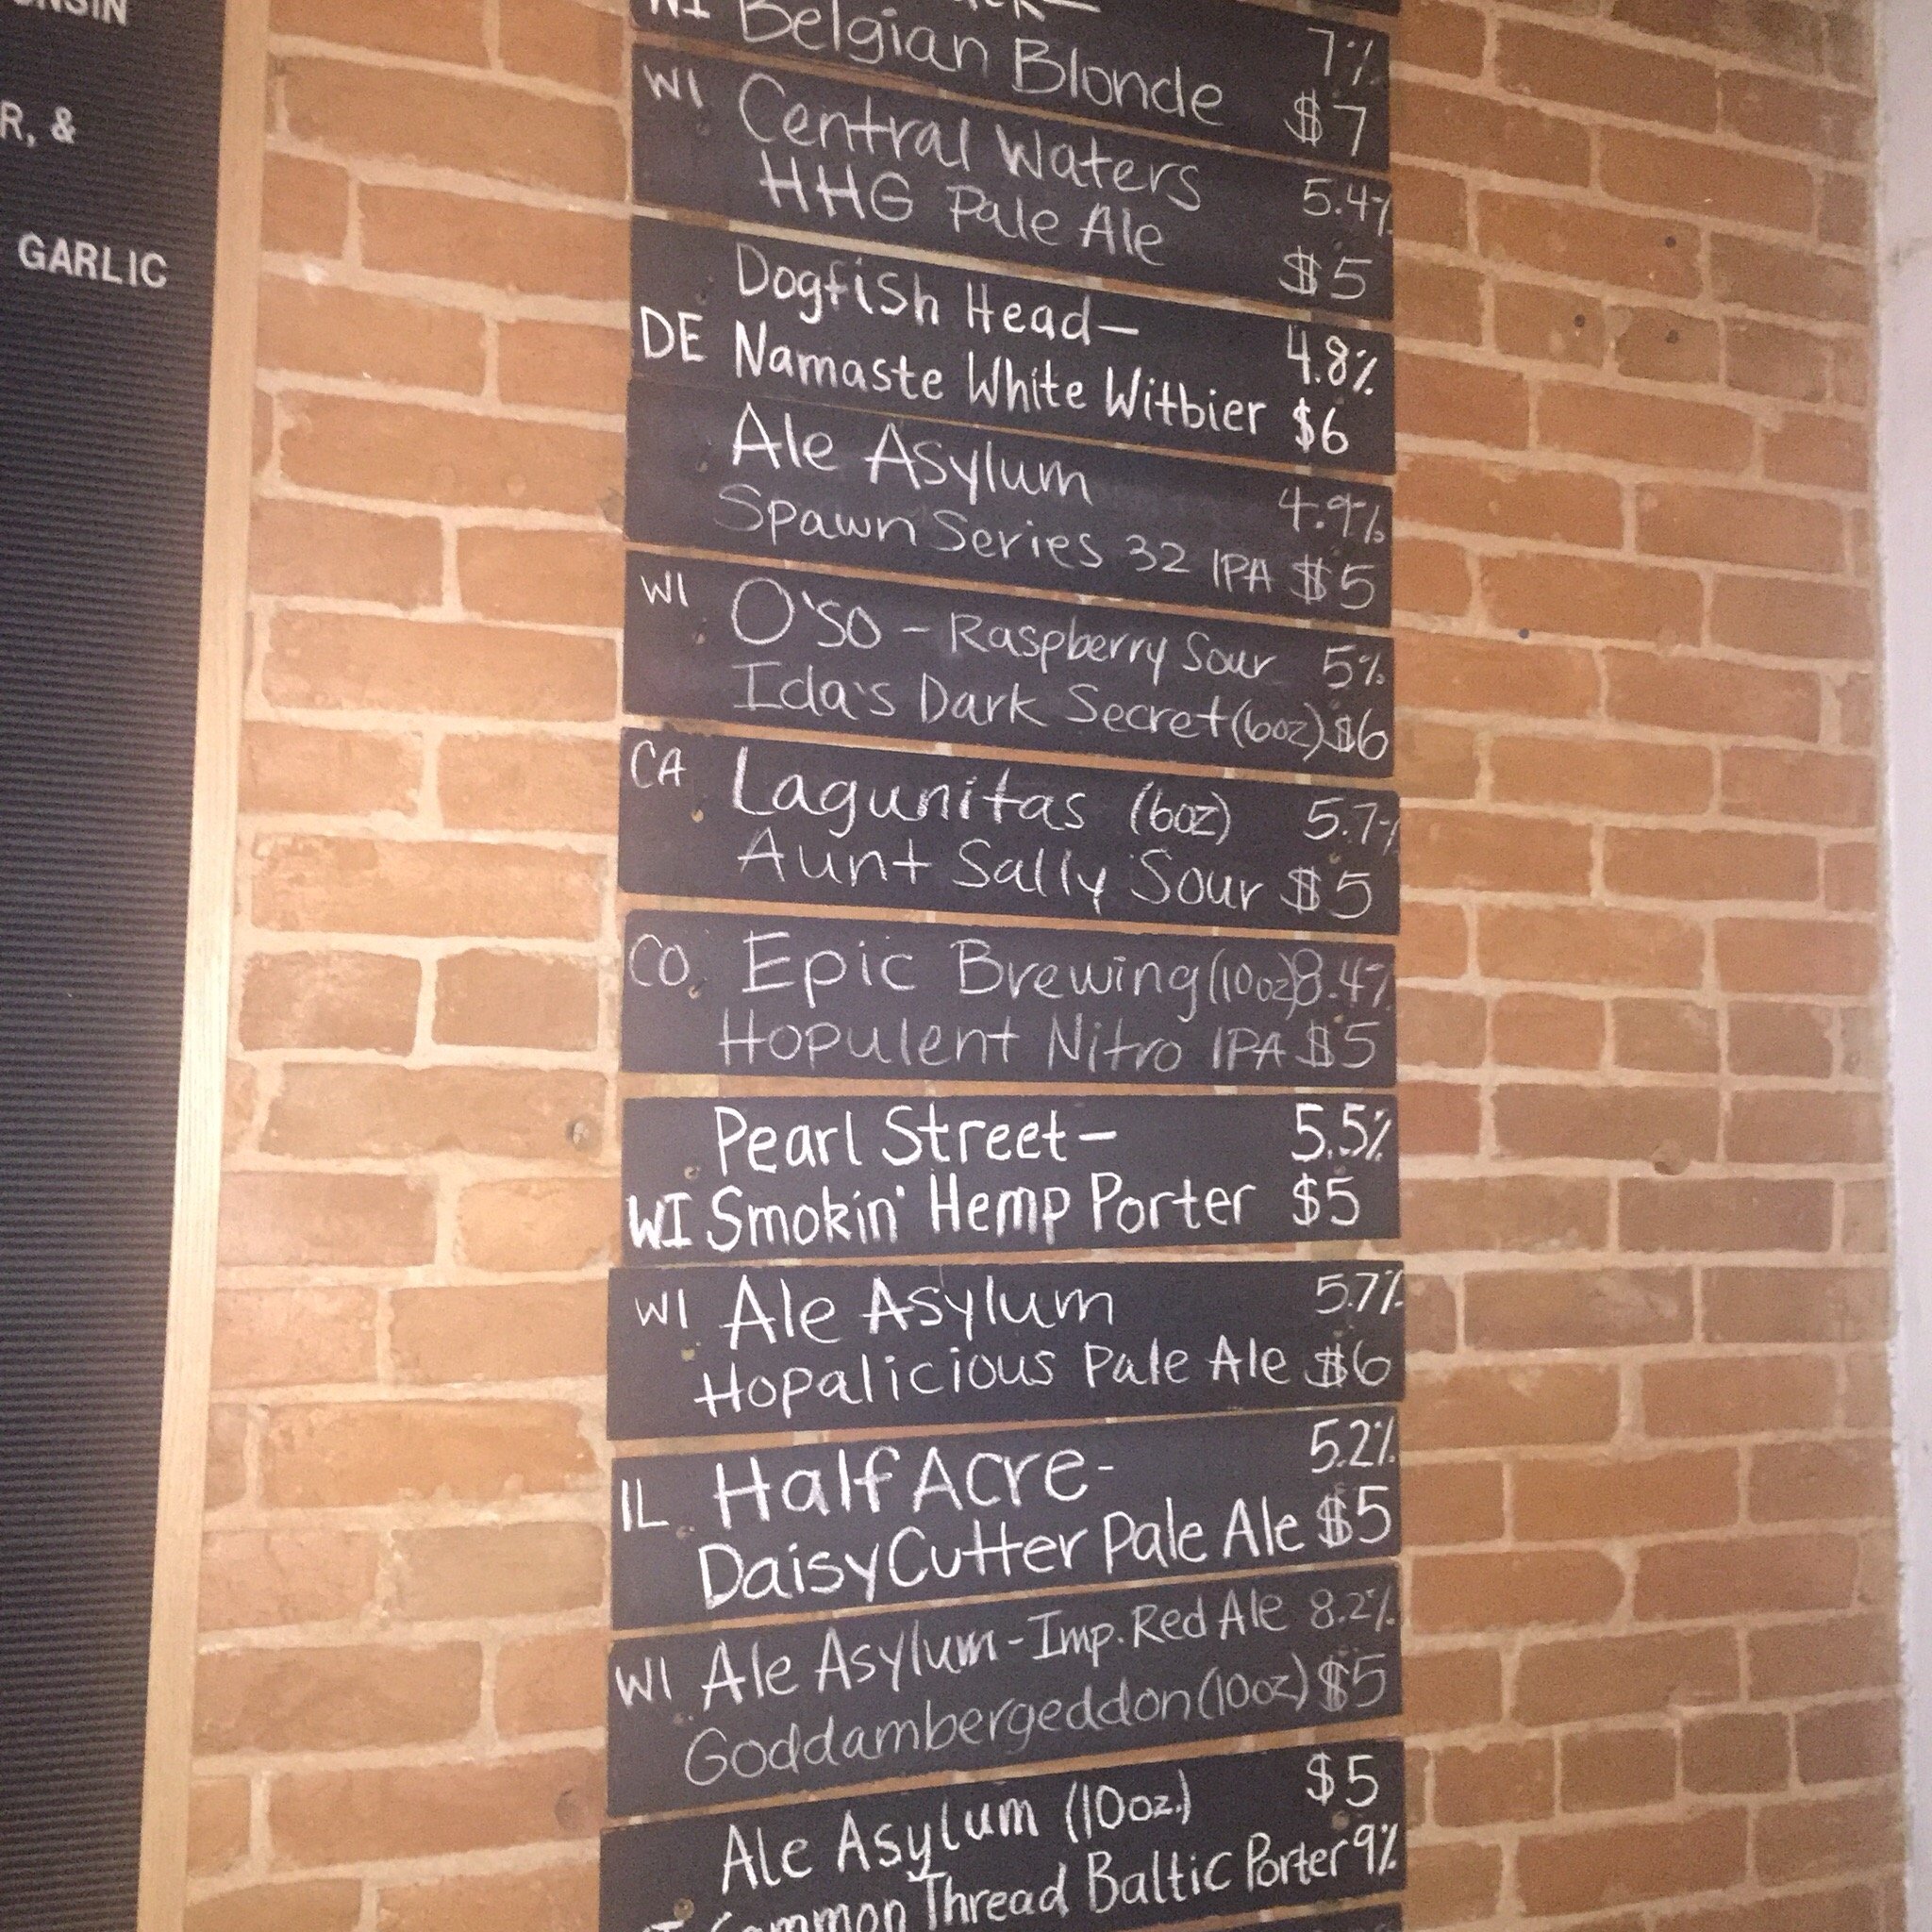 R, &
GARLIC
Belgian Blonde 7%
$7
WI Central Waters 5.4%
HHG Pale Ale $5
Dogfish Head— 4.8%
DE Namaste White Witbier $6
Ale Asylum 4.9%
Spawn Series 32 IPA $5
WI O'so - Raspberry Sour 5%
Ida's Dark Secret (6oz) $6
CA Lagunitas (6oz) 5.7%
Aunt Sally Sour $5
CO Epic Brewing (10oz) 8.4%
Hopulent Nitro IPA $5
Pearl Street— 5.5%
WI Smokin' Hemp Porter $5
WI Ale Asylum 5.7%
Hopalicious Pale Ale $6
IL Half Acre- 5.2%
Daisy Cutter Pale Ale $5
WI Ale Asylum - Imp. Red Ale 8.2%
Goddambergeddon (10oz) $5
Ale Asylum (10oz.) $5
Common Thread Baltic Porter 9%